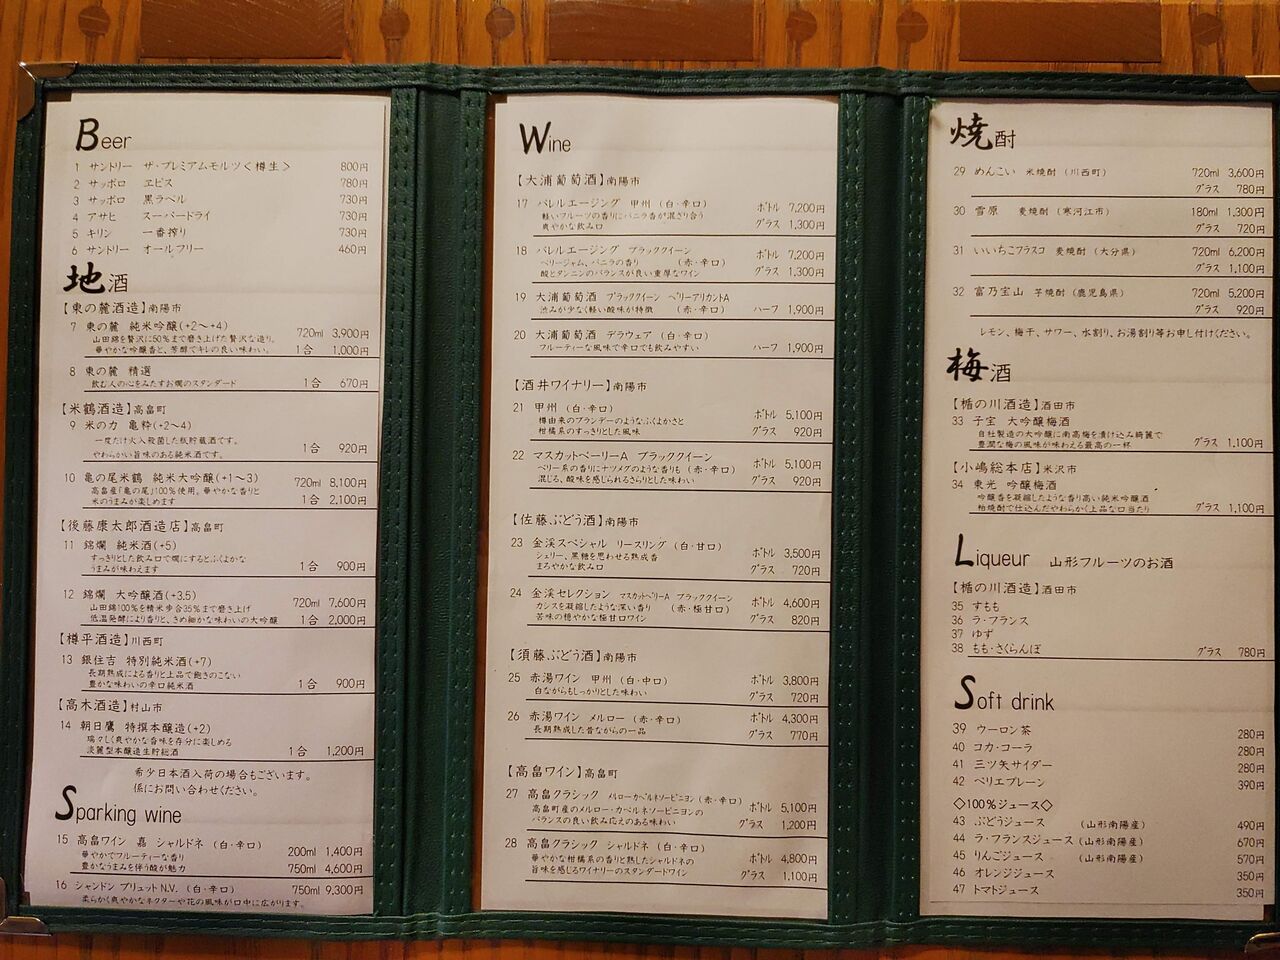 Beer
1 サントリー ザ・プレミアムモルツ<樽生> 800円
2 サッポロ ヱビス 780円
3 サッポロ 黒ラベル 730円
4 アサヒ スーパードライ 730円
5 キリン 一番搾り 730円
6 サントリー オールフリー 460円
地酒
【東の麓酒造】南陽市
7 東の麓 純米吟醸(+2~+4) 720ml 3,900円
山田錦を贅沢に50%まで磨き上げた贅沢な造り。
華やかな吟醸香と、芳醇でキレの良い味わい。 1合 1,000円
8 東の麓 精選
飲む人の心をみたすお燗のスタンダード 1合 670円
【米鶴酒造】高畠町
9 米の力 亀粋(+2~4)
一度だけ火入殺菌した瓶貯蔵酒です。
やわらかい旨味のある純米酒です。 1合 920円
10 亀の尾米鶴 純米大吟醸(+1~3) 720ml 8,100円
高畠産「亀の尾」100%使用。華やかな香りと
米のうまみが楽しめます 1合 2,100円
【後藤康太郎酒造店】高畠町
11 錦爛 純米酒(+5)
すっきりとした飲み口で燗にするとふくよかな
うまみが味わえます 1合 900円
12 錦爛 大吟醸酒(+3.5) 720ml 7,600円
山田錦100%を精米歩合35%まで磨き上げ
低温発酵により香りと、きめ細かな味わいの大吟醸 1合 2,000円
【樽平酒造】川西町
13 銀住吉 特別純米酒(+7)
長期熟成による香りと上品で飽きのこない
豊かな味わいの辛口純米酒 1合 900円
【高木酒造】村山市
14 朝日鷹 特撰本醸造(+2)
瑞々しく爽やかな旨味を存分に楽しめる
淡麗型本醸造生貯蔵酒 1合 1,200円
希少日本酒入荷の場合もございます。
係にお問い合わせください。
Sparking wine
15 高畠ワイン 嘉 シャルドネ (白・辛口)
華やかでフルーティーな香り 200ml 1,400円
豊かなうまみを伴う酸が魅力 750ml 4,600円
16 シャンドン ブリュットN.V. (白・辛口) 750ml 9,300円
柔らかく爽やかなネクターや花の風味が口中に広がります。
Wine
【大浦葡萄酒】南陽市
17 バレルエージング 甲州 (白・辛口) ボトル 7,200円
軽いフルーツの香りにバニラ香が混ざり合う
爽やかな飲み口 グラス 1,300円
18 バレルエージング ブラッククイーン ボトル 7,200円
ベリージャム、バニラの香り (赤・辛口)
酸とタンニンのバランスが良い重厚なワイン グラス 1,300円
19 大浦葡萄酒 ブラッククイーン ベリーアリカントA
渋みが少なく軽い酸味が特徴 (赤・辛口) ハーフ 1,900円
20 大浦葡萄酒 デラウェア (白・辛口)
フルーティーな風味で辛口でも飲みやすい ハーフ 1,900円
【酒井ワイナリー】南陽市
21 甲州 (白・辛口) ボトル 5,100円
樽由来のブランデーのようなふくよかさと
柑橘系のすっきりとした風味 グラス 920円
22 マスカットベーリーA ブラッククイーン
ベリー系の香りにナツメグのような香りも (赤・辛口) ボトル 5,100円
混じる、酸味を感じられるさらりとした味わい グラス 920円
【佐藤ぶどう酒】南陽市
23 金渓スペシャル リースリング (白・甘口)
シェリー、黒糖を思わせる熟成香 ボトル 3,500円
まろやかな飲み口 グラス 720円
24 金渓セレクション マスカットベリーA ブラッククイーン
カシスを凝縮したような深い香り (赤・極甘口) ボトル 4,600円
苦味の穏やかな極甘口ワイン グラス 820円
【須藤ぶどう酒】南陽市
25 赤湯ワイン 甲州 (白・中口) ボトル 3,800円
白ながらもしっかりとした味わい グラス 720円
26 赤湯ワイン メルロー (赤・辛口) ボトル 4,300円
長期熟成した昔ながらの一品 グラス 770円
【高畠ワイン】高畠町
27 高畠クラシック メルローカベルネソービニヨン(赤・辛口)
高畠町産のメルロー・カベルネソービニヨンの ボトル 5,100円
バランスの良い飲み応えのある味わい グラス 1,200円
28 高畠クラシック シャルドネ (白・辛口)
華やかな柑橘系の香りと熟したシャルドネの ボトル 4,800円
旨味を感じるワイナリーのスタンダードワイン グラス 1,100円
焼酎
29 めんこい 米焼酎 (川西町) 720ml 3,600円
グラス 780円
30 雪原 麦焼酎 (寒河江市) 180ml 1,300円
グラス 720円
31 いいちこフラスコ 麦焼酎 (大分県) 720ml 6,200円
グラス 1,100円
32 富乃宝山 芋焼酎 (鹿児島県) 720ml 5,200円
グラス 920円
レモン、梅干、サワー、水割り、お湯割り等お申し付けください。
梅酒
【楯の川酒造】酒田市
33 子宝 大吟醸梅酒
自社製造の大吟醸に南高梅を漬け込み綺麗で
豊潤な梅の風味が味わえる最高の一杯 グラス 1,100円
【小嶋総本店】米沢市
34 東光 吟醸梅酒
吟醸香を凝縮したような香り高い純米吟醸酒
粕焼酎で仕込んだやわらかく上品な口当たり グラス 1,100円
Liqueur 山形フルーツのお酒
【楯の川酒造】酒田市
35 すもも
36 ラ・フランス
37 ゆず
38 もも・さくらんぼ グラス 780円
Soft drink
39 ウーロン茶 280円
40 コカ・コーラ 280円
41 三ツ矢サイダー 280円
42 ペリエプレーン 390円
◇100%ジュース◇
43 ぶどうジュース (山形南陽産) 490円
44 ラ・フランスジュース (山形南陽産) 670円
45 りんごジュース (山形南陽産) 570円
46 オレンジジュース 350円
47 トマトジュース 350円